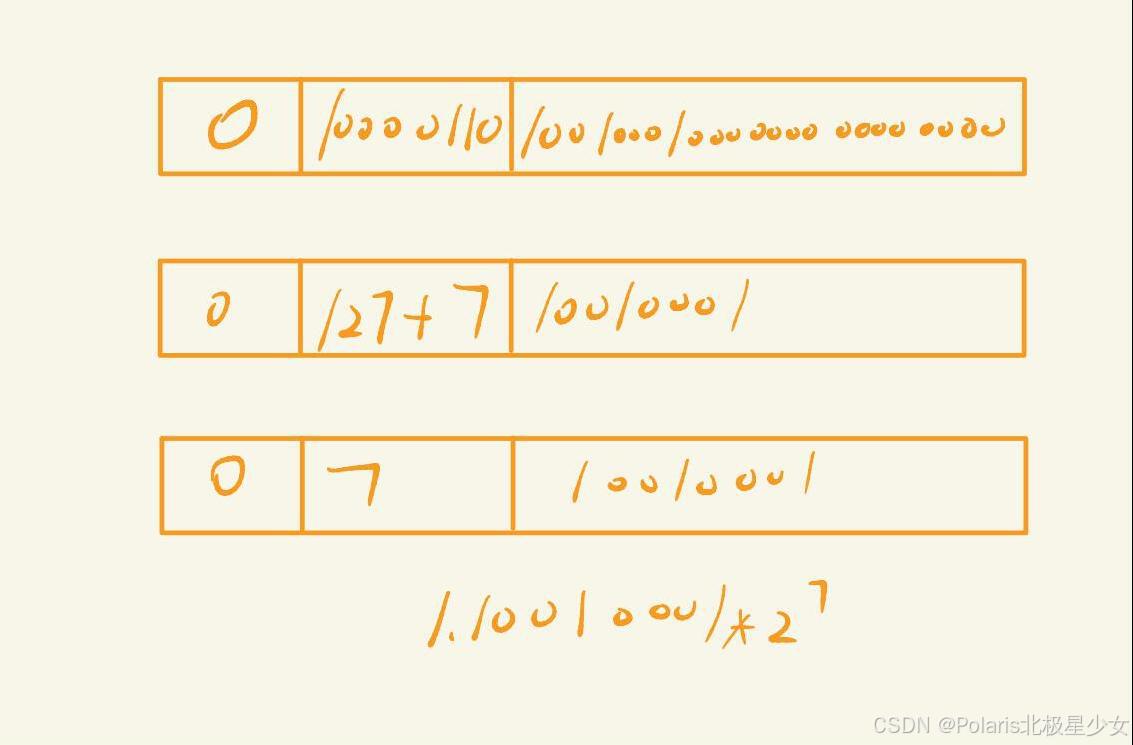 0 10000110 10010001000000000000000
0 127+7 10010001
0 7 10010001
1.10010001*2⁷
CSDN @Polaris北极星少女